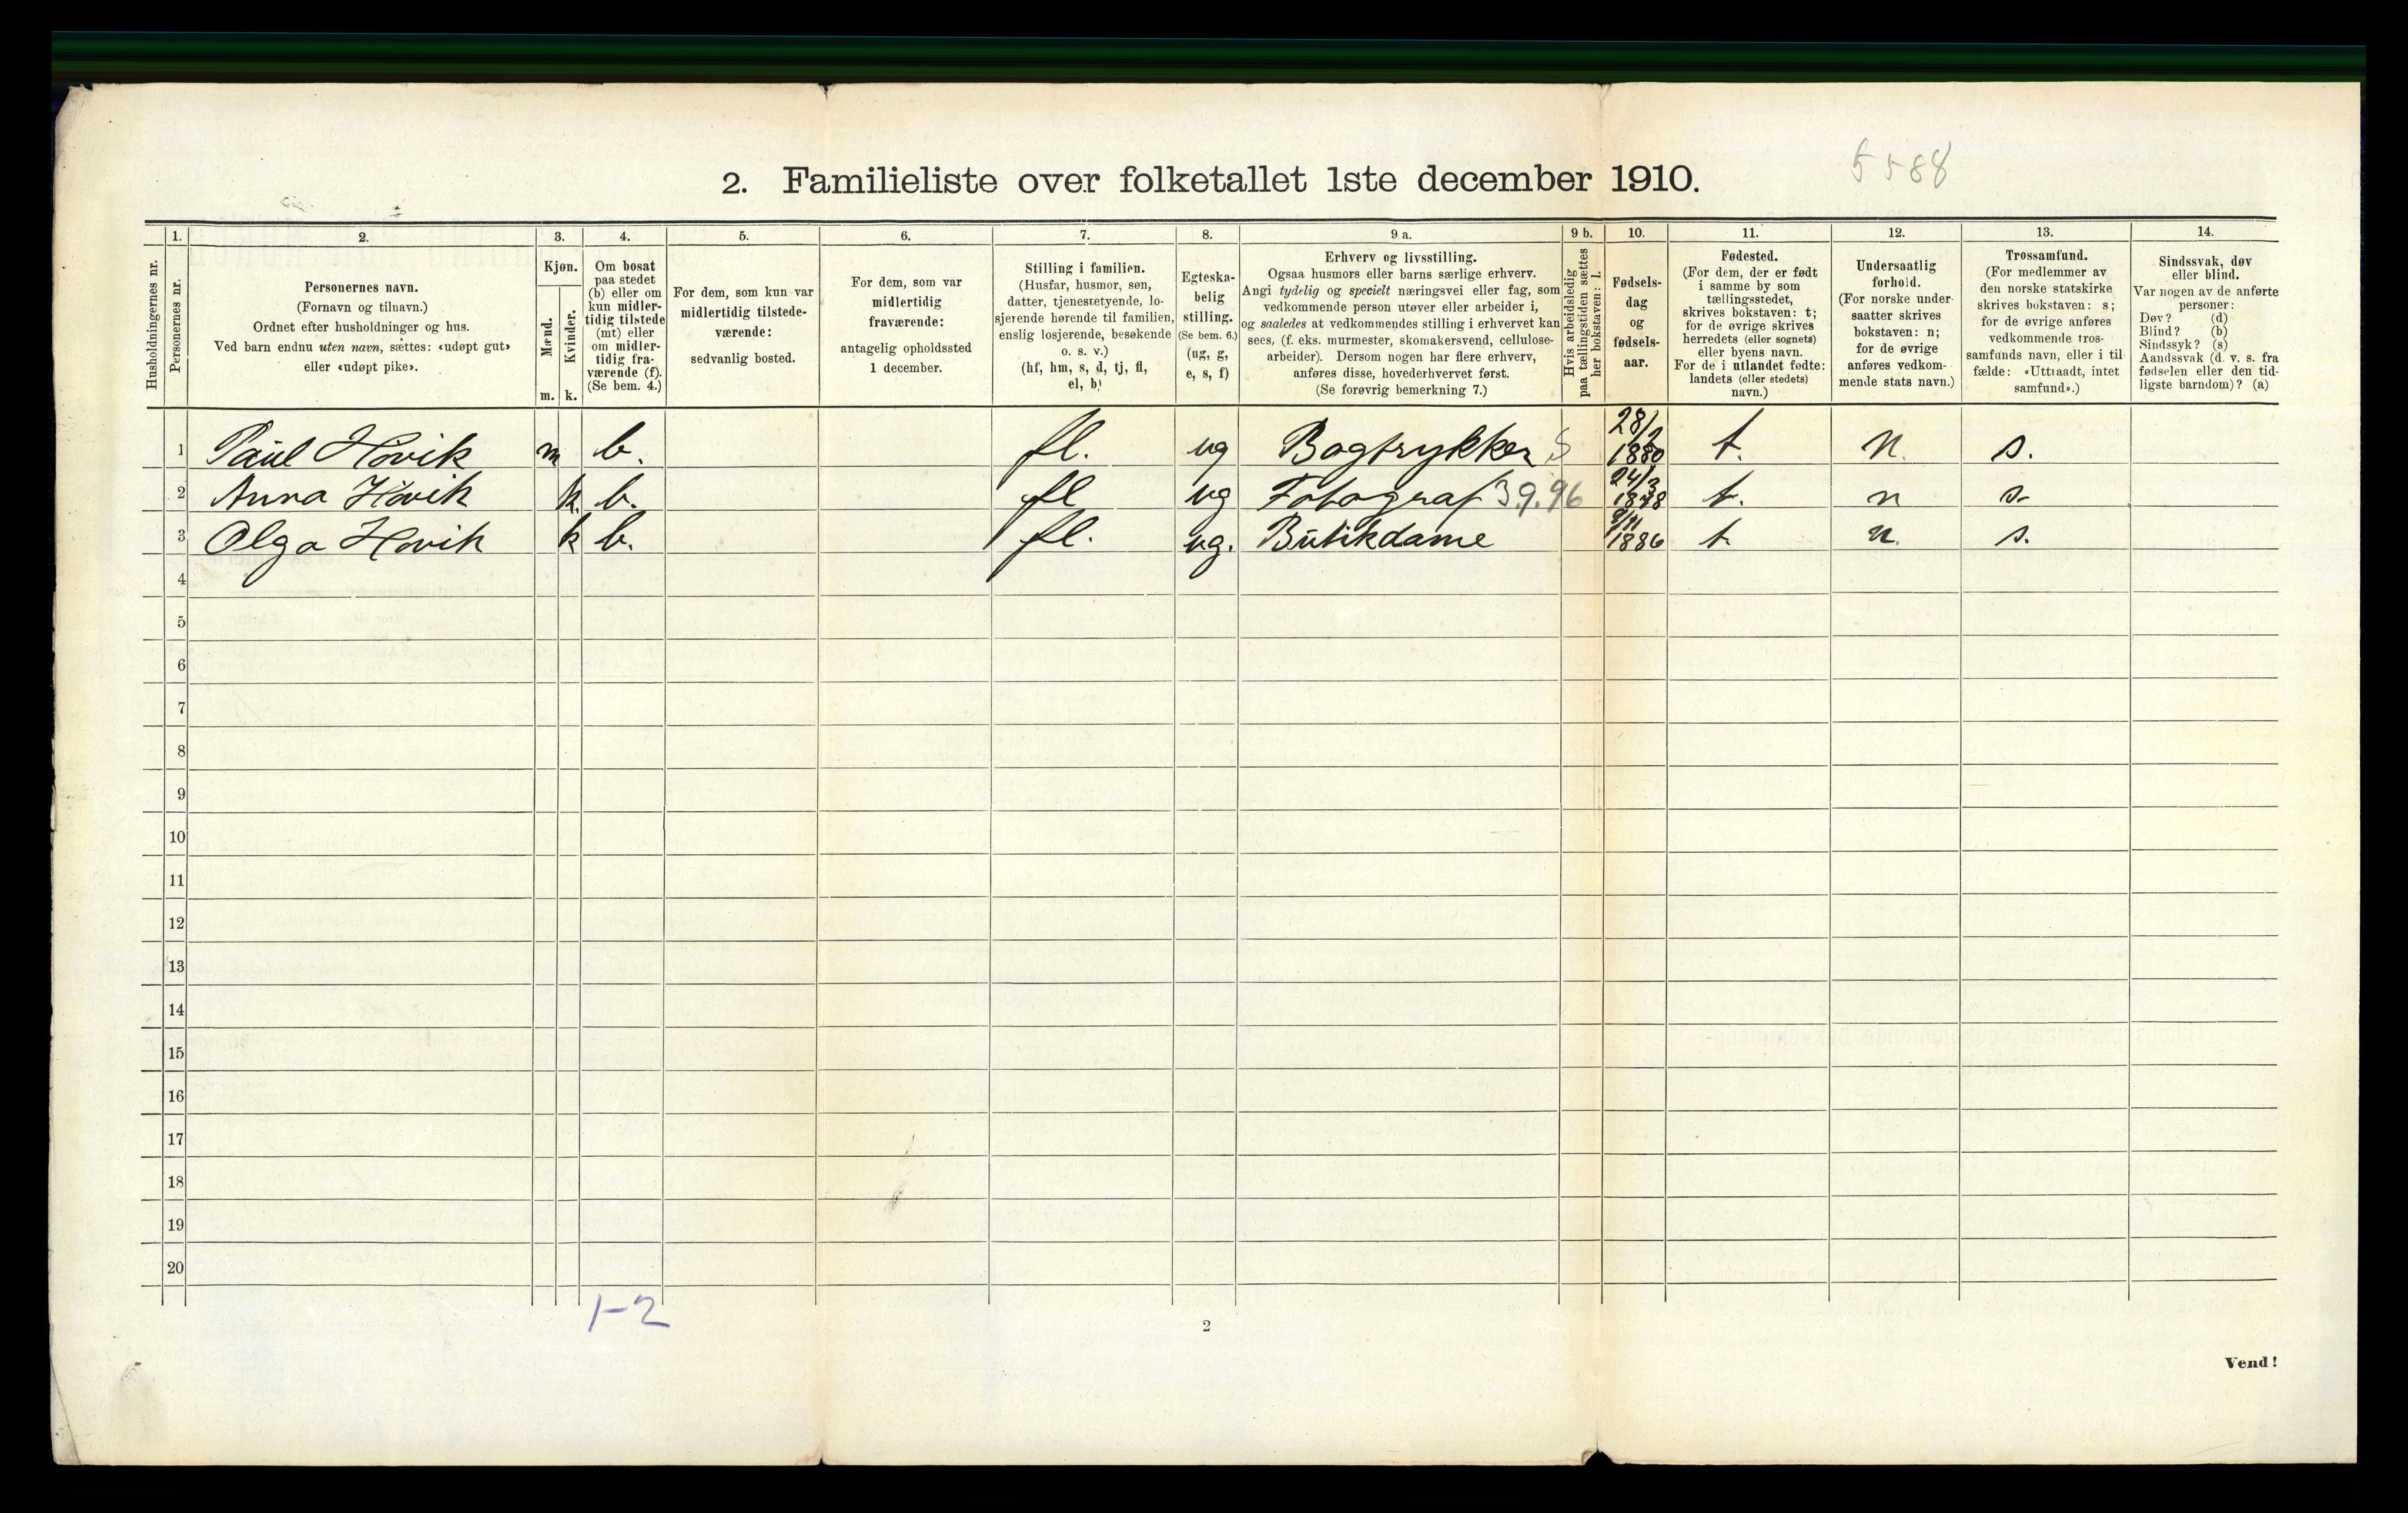 5588
2. Familieliste over folketallet 1ste december 1910.
Husholdningernes nr.
1.
Personernes nr.
2.
Personernes navn.
(Fornavn og tilnavn.)
Ordnet efter husholdninger og hus.
Ved barn endnu uten navn, sættes: «udøpt gut»
eller «udøpt pike».
3.
Kjøn.
Mænd.
Kvinder.
m.
k.
4.
Om bosat
paa stedet
(b) eller om
kun midler-
tidig tilstede
(mt) eller
om midler-
tidig fra-
værende (f).
(Se bem. 4.)
5.
For dem, som kun var
midlertidig tilstede-
værende:
sedvanlig bosted.
6.
For dem, som var
midlertidig
fraværende:
antagelig opholdssted
1 december.
7.
Stilling i familien.
(Husfar, husmor, søn,
datter, tjenestetyende, lo-
sjerende hørende til familien,
enslig losjerende, besøkende
o. s. v.)
(hf, hm, s, d, tj, fl,
el, b)
8.
Egteska-
belig
stilling.
(Se bem. 6.)
(ug, g,
e, s, f)
9 a.
Erhverv og livsstilling.
Ogsaa husmors eller barns særlige erhverv.
Angi tydelig og specielt næringsvei eller fag, som
vedkommende person utøver eller arbeider i,
og saaledes at vedkommendes stilling i erhvervet kan
sees, (f. eks. murmester, skomakersvend, cellulose-
arbeider). Dersom nogen har flere erhverv,
anføres disse, hovederhvervet først.
(Se forøvrig bemerkning 7.)
9 b.
Hvis arbeidsledig
paa tællingstiden sættes
her bokstaven: l.
10.
Fødsels-
dag
og
fødsels-
aar.
11.
Fødested.
(For dem, der er født
i samme by som
tællingsstedet,
skrives bokstaven: t;
for de øvrige skrives
herredets (eller sognets)
eller byens navn.
For de i utlandet fødte:
landets (eller stedets)
navn.)
12.
Undersaatlig
forhold.
(For norske under-
saatter skrives
bokstaven: n;
for de øvrige
anføres vedkom-
mende stats navn.)
13.
Trossamfund.
(For medlemmer av
den norske statskirke
skrives bokstaven: s;
for de øvrige anføres
vedkommende tros-
samfunds navn, eller i til-
fælde: «Uttraadt, intet
samfund».)
14.
Sindssvak, døv
eller blind.
Var nogen av de anførte
personer:
Døv? (d)
Blind? (b)
Sindssyk? (s)
Aandssvak (d. v. s. fra
fødselen eller den tid-
ligste barndom)? (a)
1 Paul Hovik m b. fl. ug Bogtrykker S 28/2 1880 t. n. s.
2 Anna Hovik k. b. fl ug Fotograf 39.96 24/3 1878 t. n s.
3 Olga Hovik k b. fl. ug. Butikdame 9/11 1886 t n. s.
4
5
6
7
8
9
10
11
12
13
14
15
16
17
18
19
20
1-2
2
Vend!